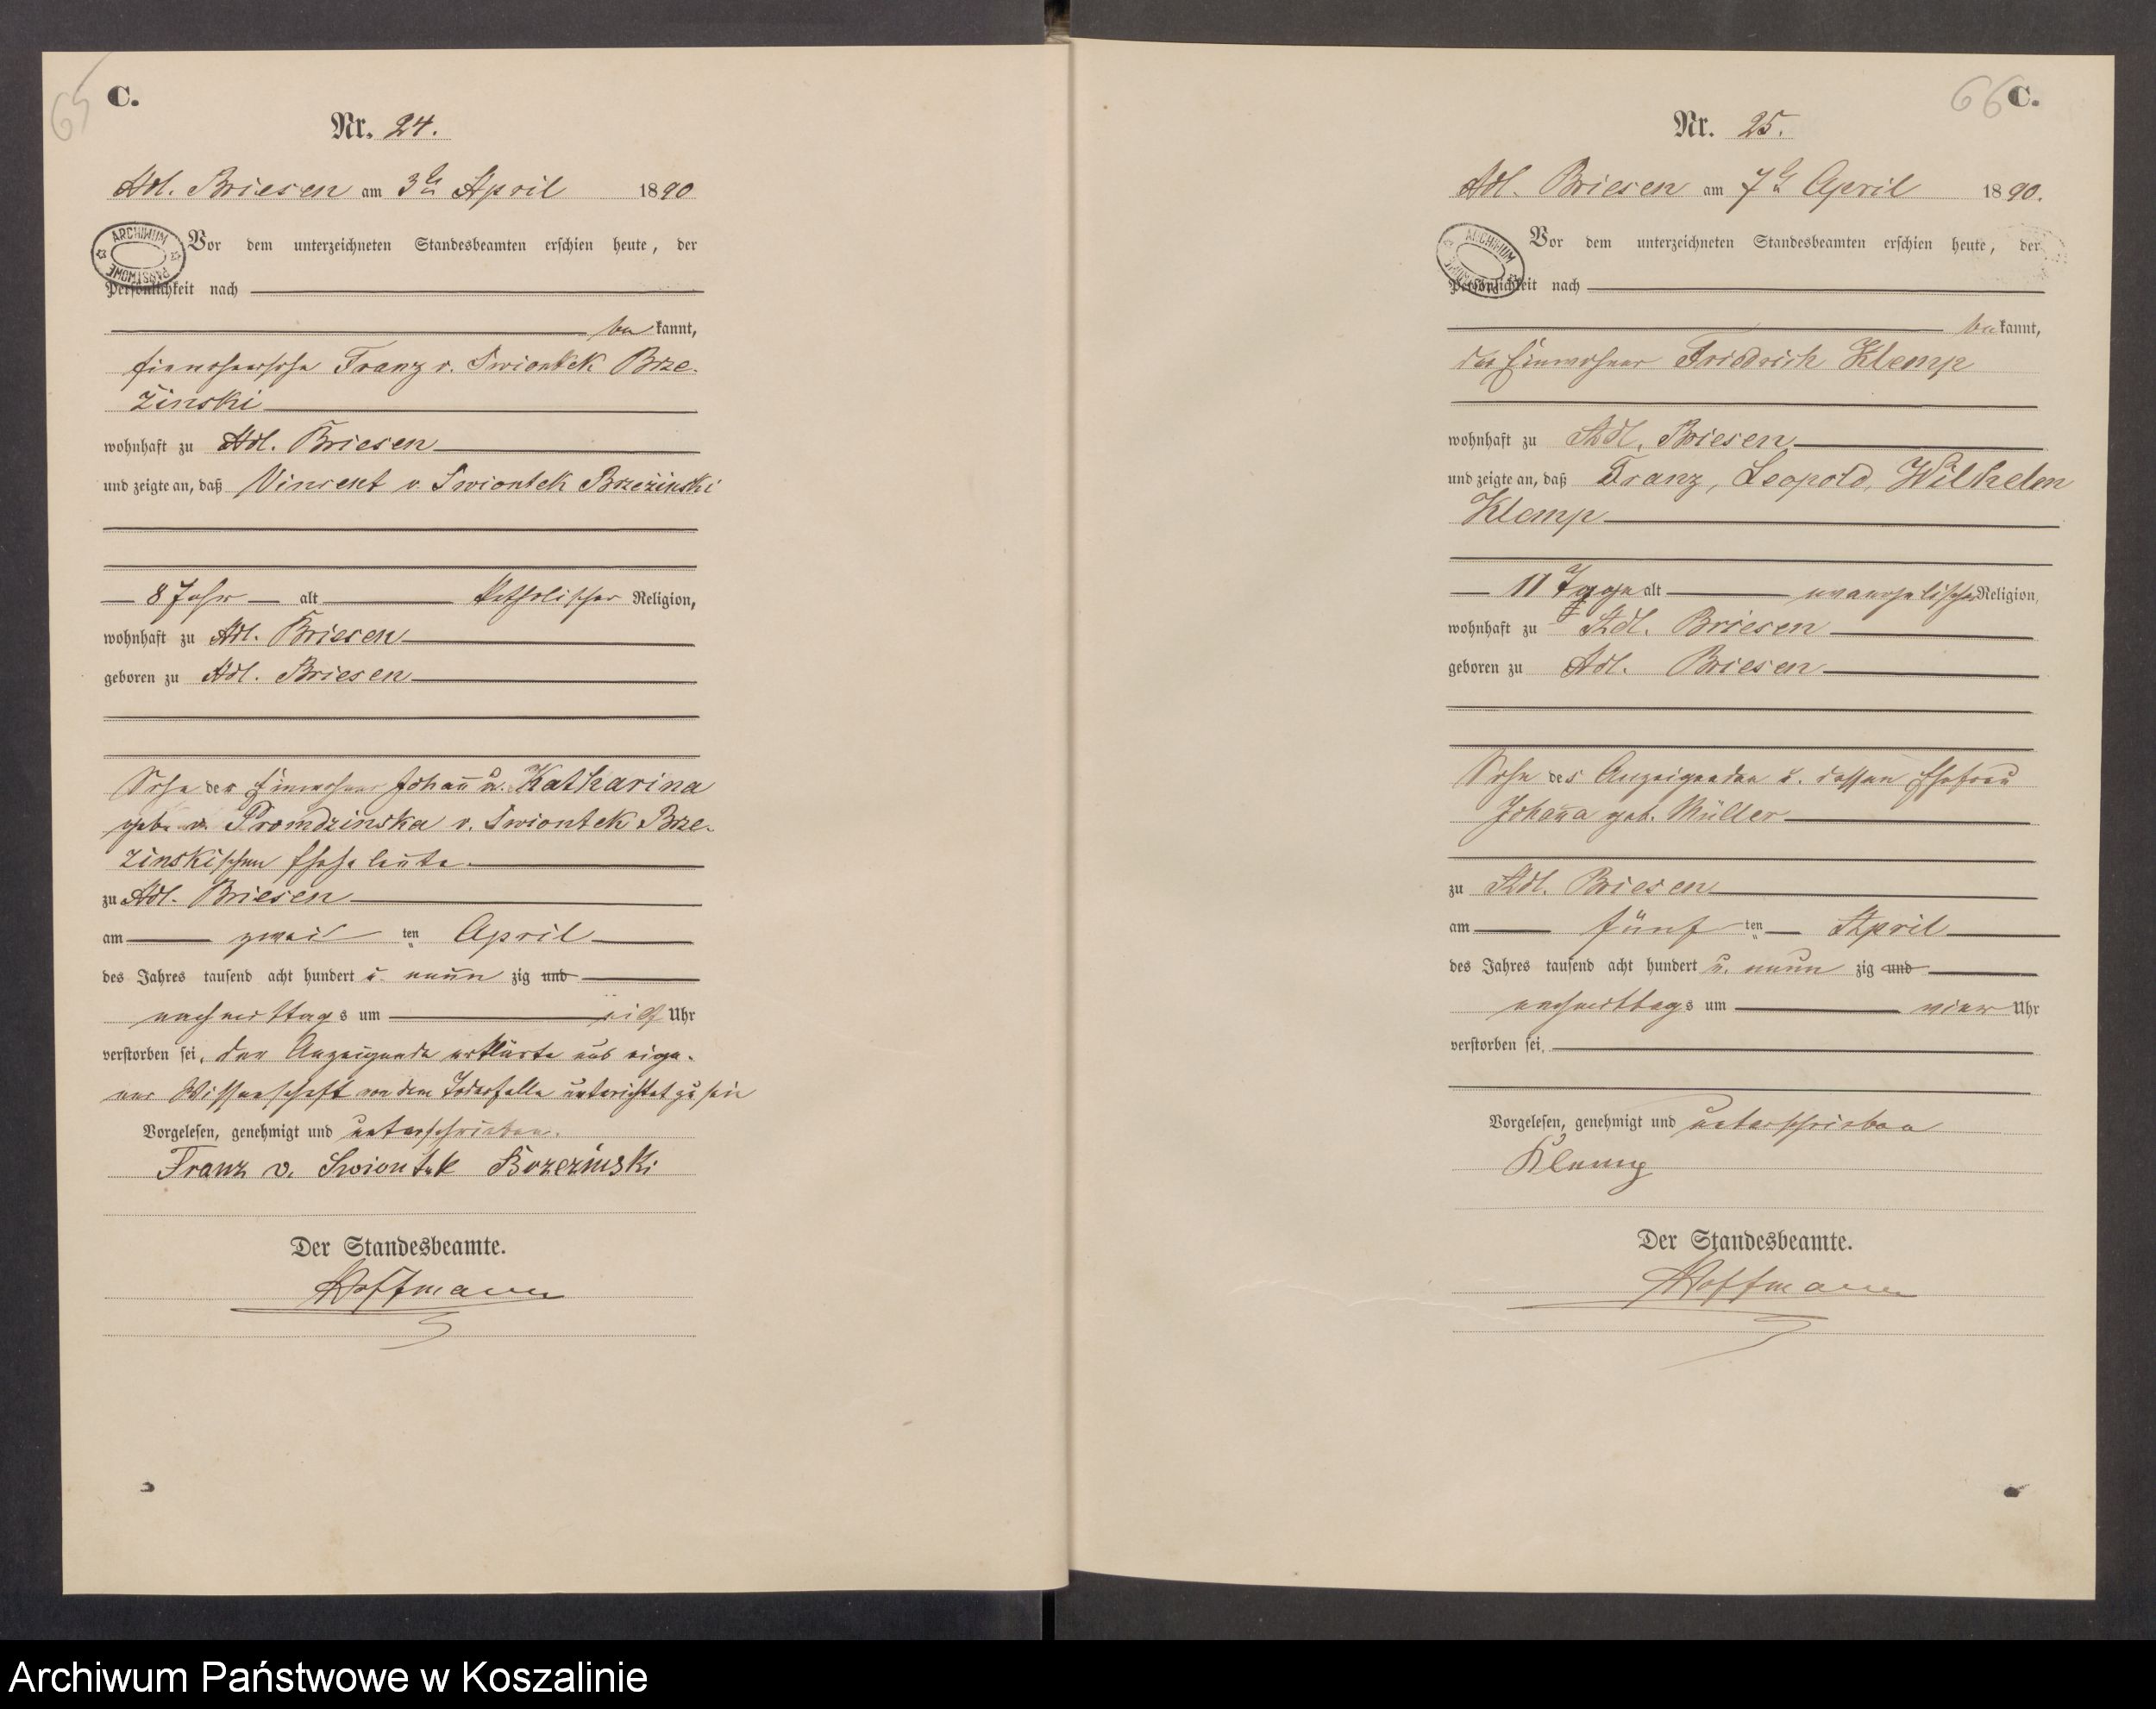 65
C.
Nr. 24.
Adl. Briesen am 3ten April 1890
ARCHIWUM PAŃSTWOWE
Vor dem unterzeichneten Standesbeamten erschien heute, der
Persönlichkeit nach
be kannt,
Franz v. Swiontek Brze-
zinski
wohnhaft zu Adl. Briesen
und zeigte an, daß Vincent v Swiontek Brzezinski
8 Jahr alt katholischer Religion,
wohnhaft zu Adl. Briesen
geboren zu Adl. Briesen
Sohn der Einwohner Johann u. Katharina
geb. v. Promdzinska v. Swiontek Brze-
zinskischen Eheleute
zu Adl. Briesen
am zwei ten April
des Jahres tausend acht hundert u. neun zig und
nachmittags um Uhr
verstorben sei, der Anzeigende erklärte aus eige-
ner Wissenschaft von dem Todesfalle unterichtet zu sein
Vorgelesen, genehmigt und unterschrieben.
Franz v. Swiontek Brzezinski
Der Standesbeamte.
Hoffmann
66
C.
Nr. 25.
Adl. Briesen am 7t April 1890.
ARCHIWUM PAŃSTWOWE
Vor dem unterzeichneten Standesbeamten erschien heute, der
Persönlichkeit nach
be kannt,
der Einwohner Friedrich Klemp
wohnhaft zu Adl. Briesen
und zeigte an, daß Franz, Leopold, Wilhelm
Klemp
11 Tage alt evangelischer Religion,
wohnhaft zu Adl. Briesen
geboren zu Adl. Briesen
Sohn des Anzeigenden u. dessen Ehefrau
Johanna geb. Müller
zu Adl. Briesen
am fünf ten April
des Jahres tausend acht hundert u. neun zig und
nachmittags um vier Uhr
verstorben sei,
Vorgelesen, genehmigt und unterschrieben
Klemp
Der Standesbeamte.
Hoffmann
Archiwum Państwowe w Koszalinie